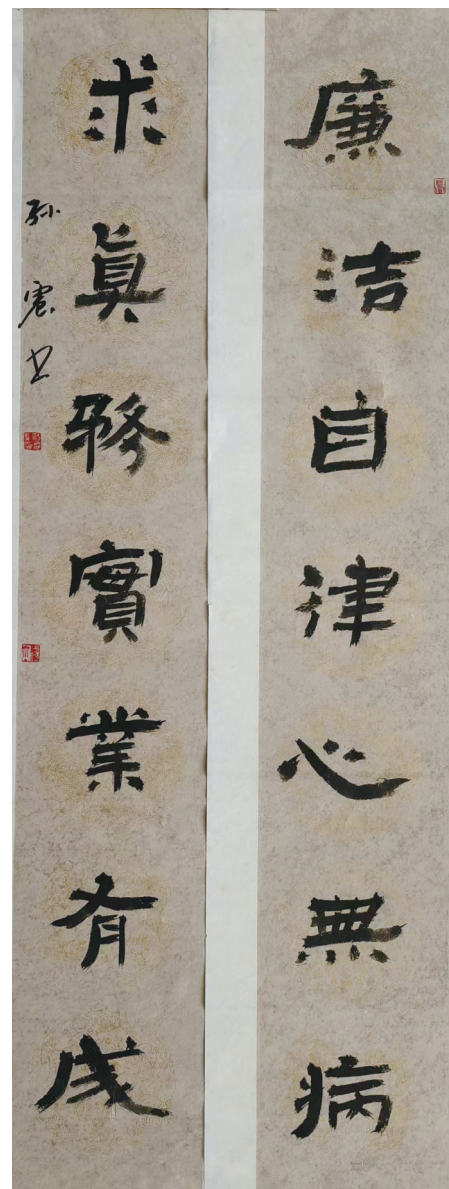 廉洁自律心無病
求真務實業有成
孙震书